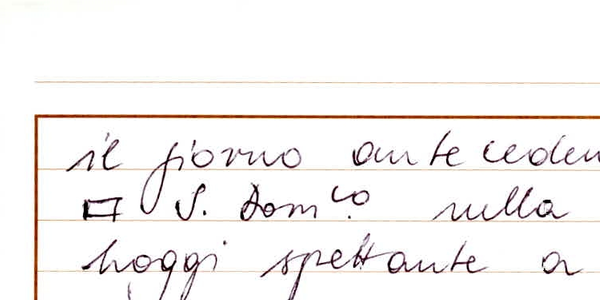 il giorno anteceden
S. Dom.co nella
hoggi spettante a